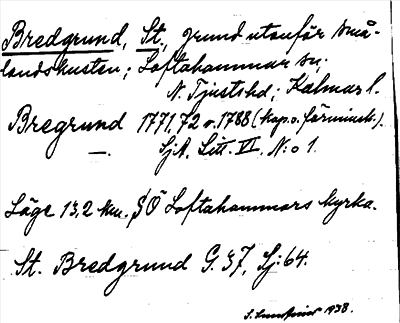 Bredgrund, St., grund utanför små-
landskusten; Loftahammar sn;
N. Tjusts hd; Kalmar l.
Bregrund 1771, 72 o. 1788 (kop. o. förminsk.).
SjA. Litt. VI. N:o 1.
Läge 13,2 km. SÖ Loftahammars kyrka.
St. Bredgrund G. 37, Sj: 64.
1938.